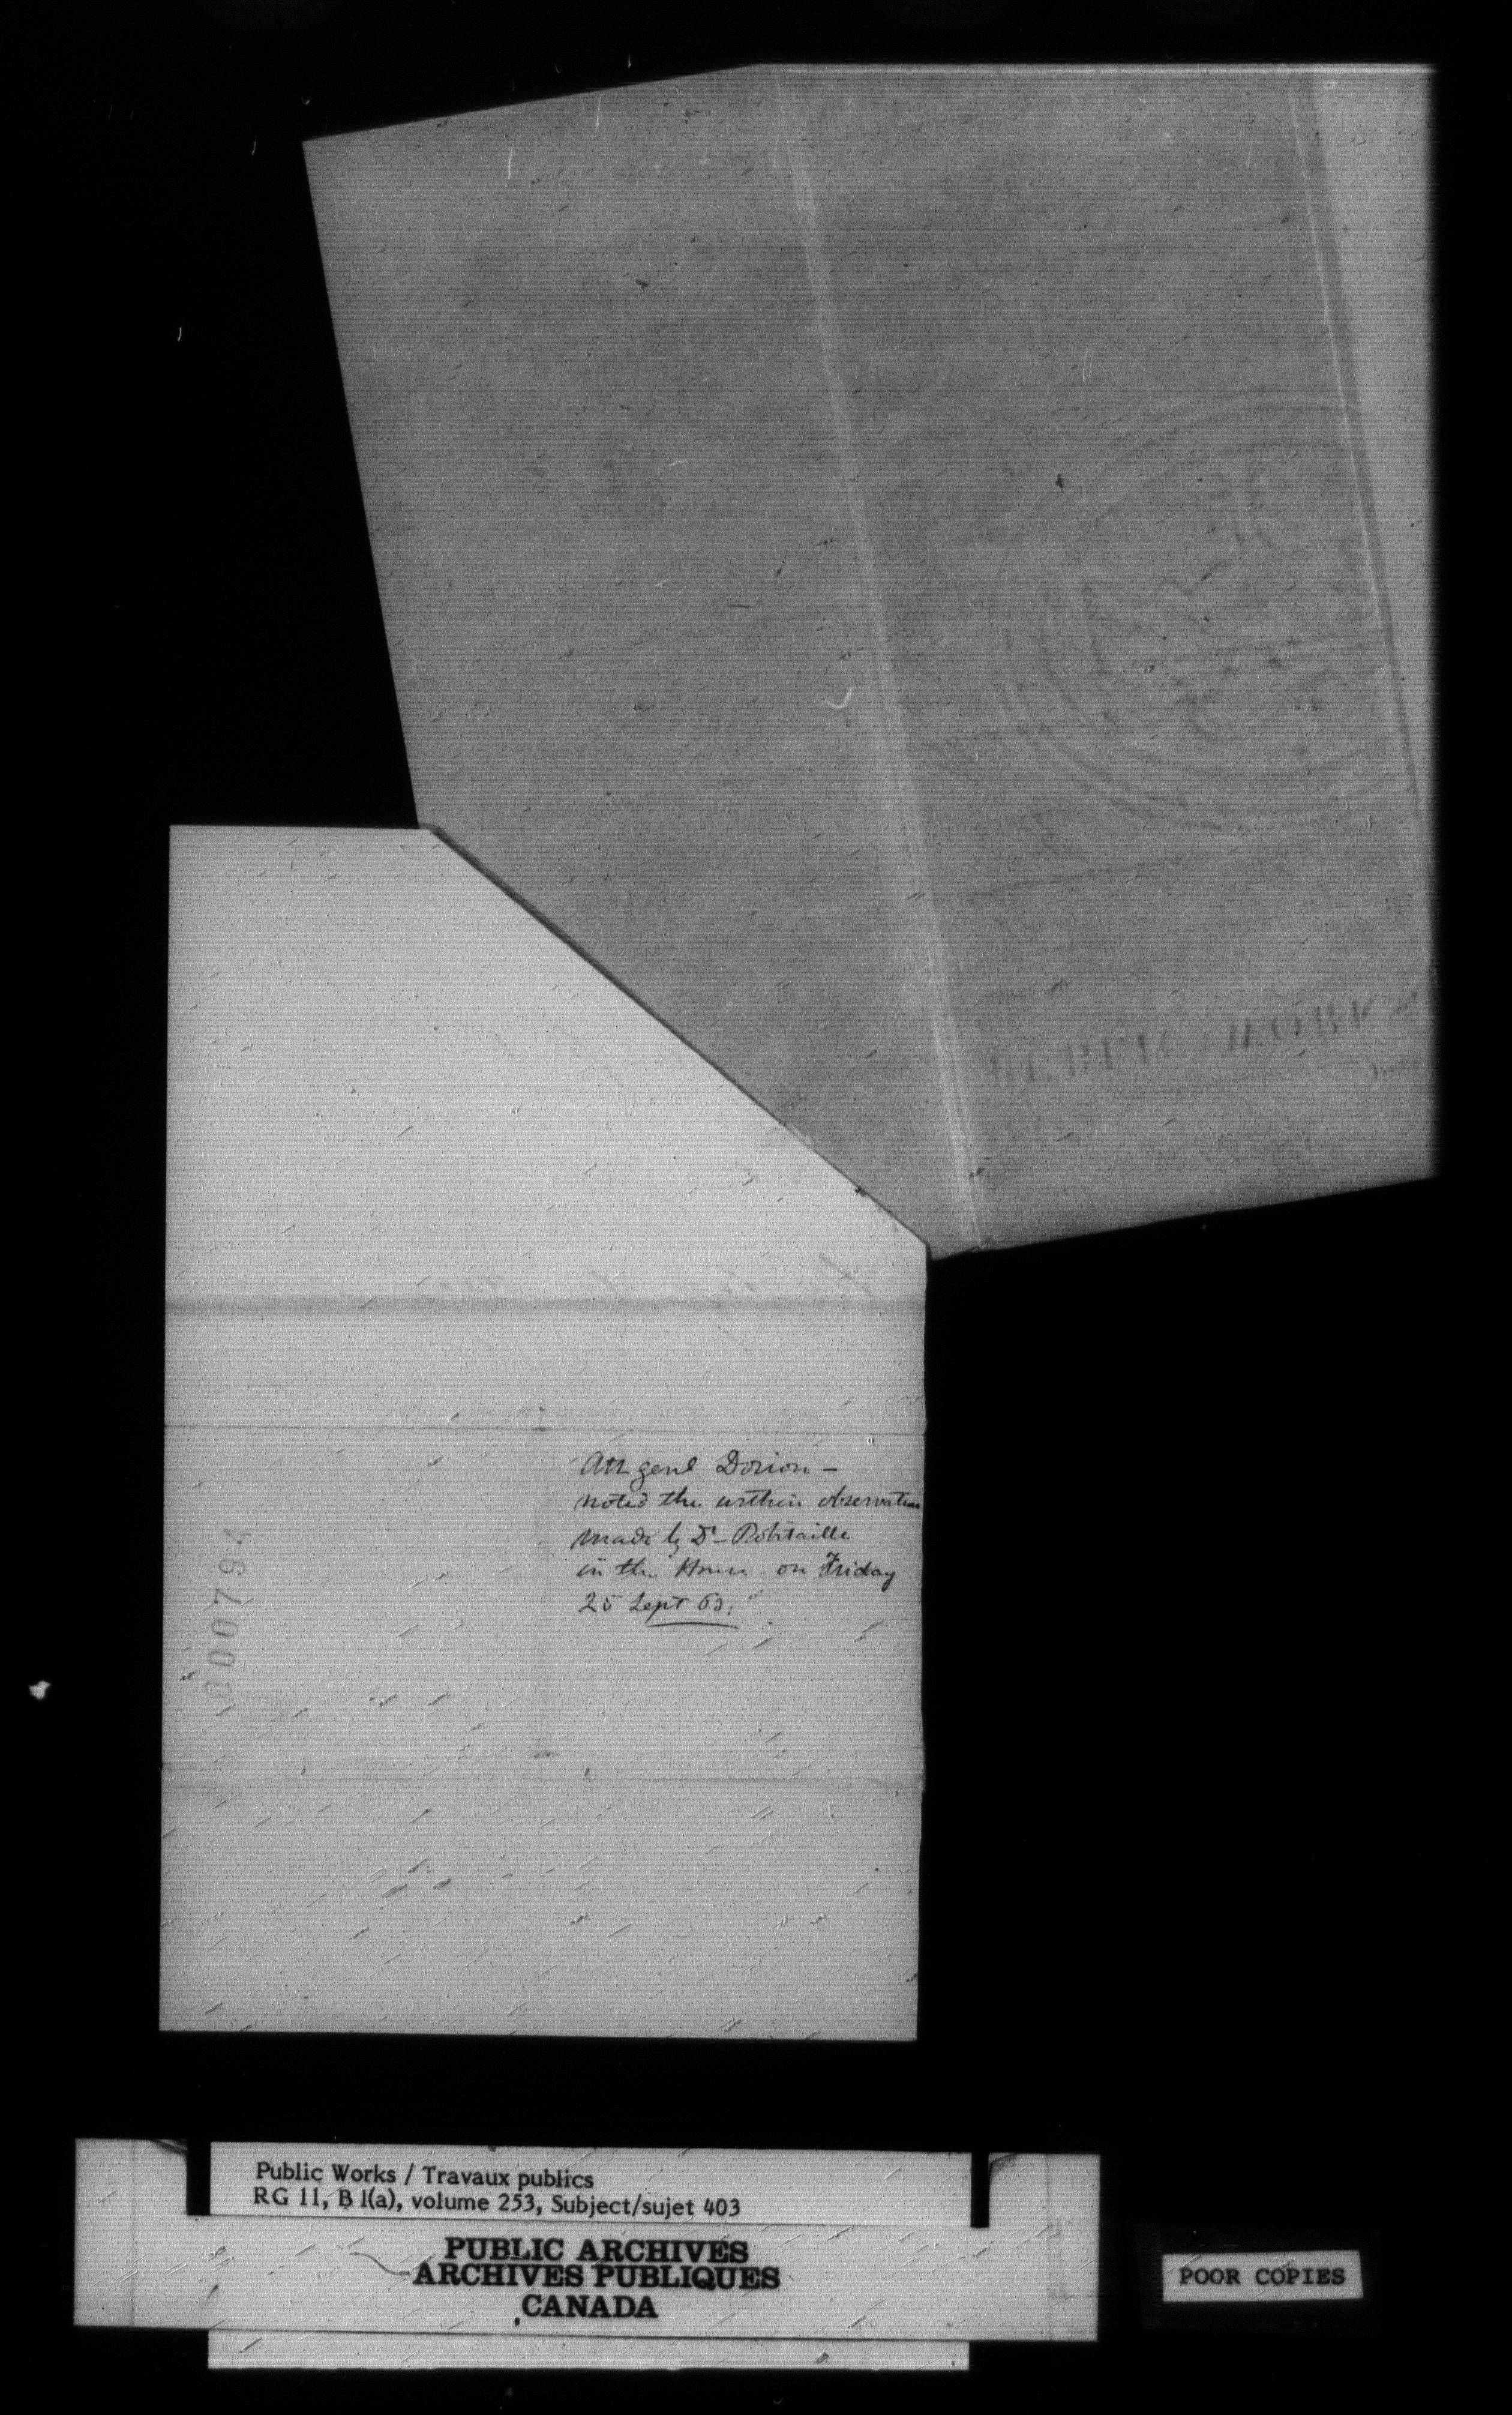 Att genl Dorion –
noted the within observation
made by Dr – Robitaille
in the House – on Friday
25 Sept 63.
000794
Public Works / Travaux publics
RG 11, B 1(a), volume 253, Subject/sujet 403
PUBLIC ARCHIVES
ARCHIVES PUBLIQUES
CANADA
POOR COPIES